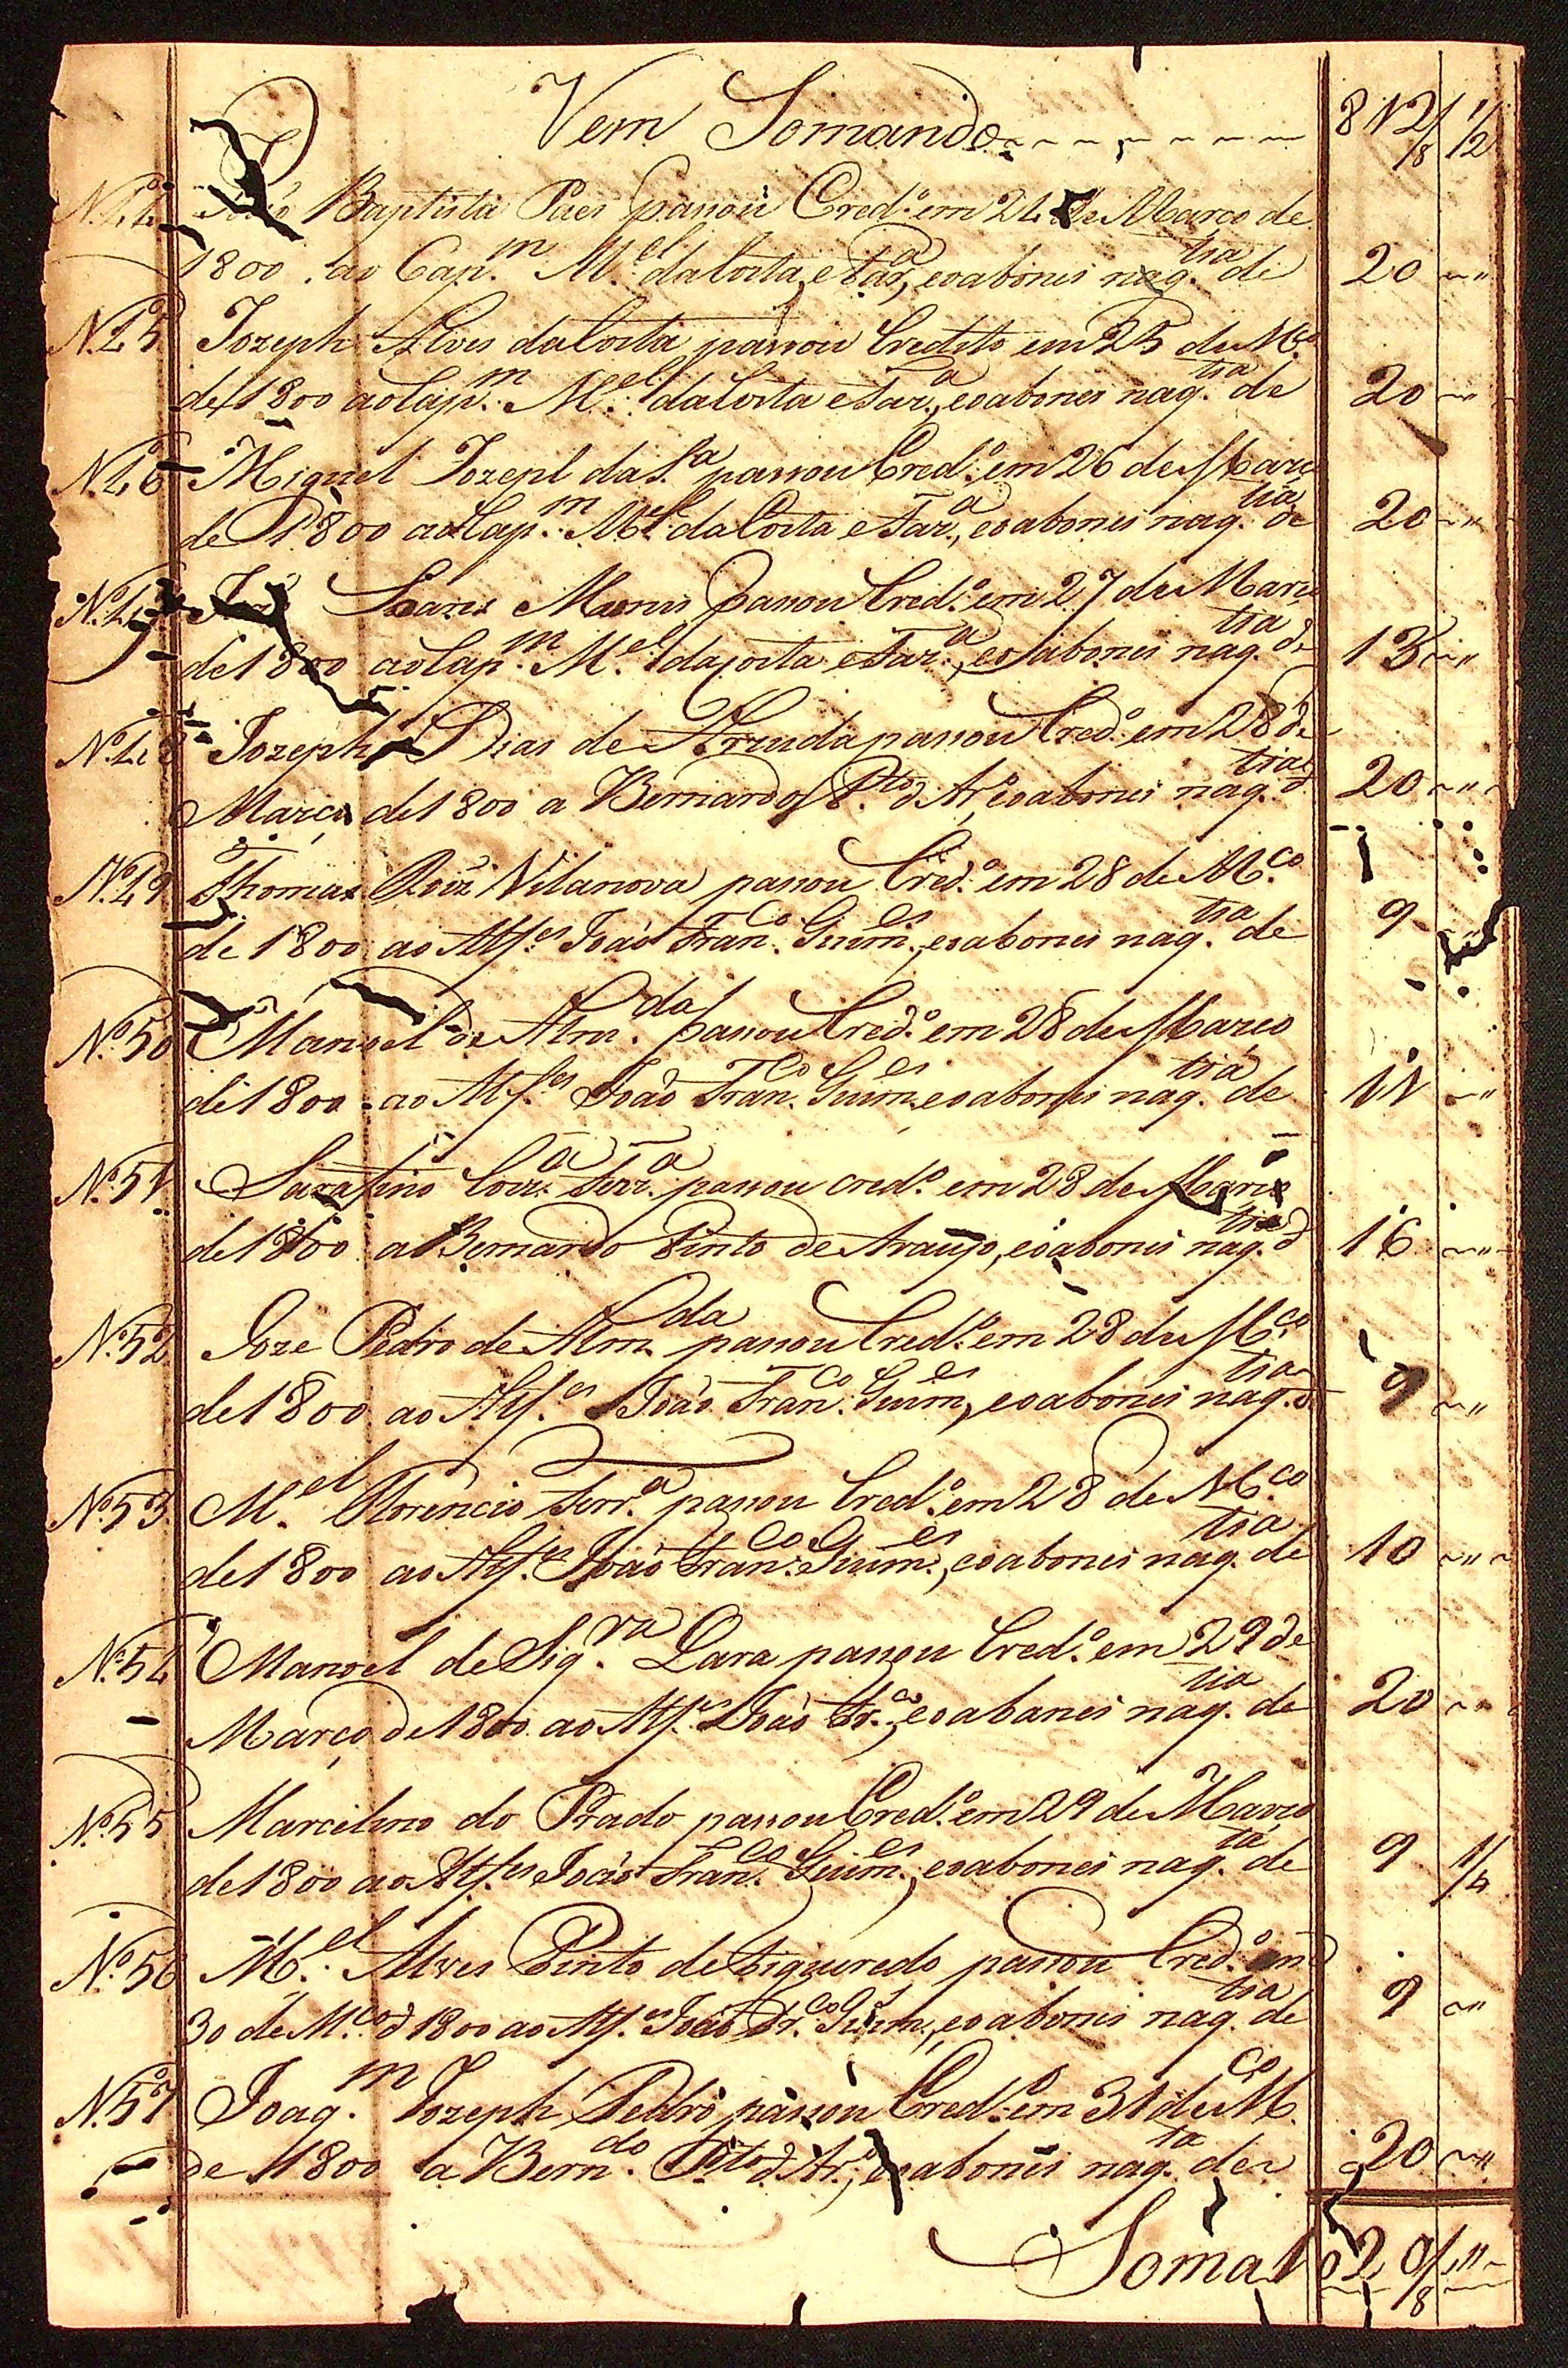 Vem Somando 812/8 1/2
N.º 44 João Baptista Paes passou Cred.º em 24 de Março de
1800. ao Cap.m M.el da Costa e Far.a, eo abonei na q.tia de 20
N.º 45 Jozeph Alves da Costa passou Credito em 25 de M.co
de 1800 ao Cap.m M.el da Costa e Far.a, eo abonei na q.tia de 20
N.º 46 Miguel Jozeph da S.a passou Cred.º em 26 de Março
de 1800 ao Cap.m M.el da Costa e Far.a, eo abonei na q.tia de 20
N.º 47 Soares Nunes passou Cred.º em 27 de Março
de 1800 ao Cap.m M.el da Costa e Far.a, eo abonei na q.tia de 13
N.º 48 Jozeph Dias de Arruda passou Cred.º em 28 de
Março de 1800 a Bernardo P.to d Ar.º, eo abonei na q.tia d 20
N.º 49 Thomas Roiz Vilanova passou Cred.º em 28 de M.co
de 1800 ao Alf.es João Fran.co Guim.es, eo abonei na q.tia de 9
N.º 50 Manoel de Alm.da passou Cred.º em 28 de Março
de 1800 ao Alf.es João Fran.co Guim.es eo abonei na q.tia de 11
N.º 51 Sarafino Corr.a Ferr.a passou cred.º em 28 de Março
de 1800 a Bernardo Pinto de Araujo, eo abonei na q.tia d 16
N.º 52 Joze Pedro de Alm.da passou Cred.º em 28 de M.co
de 1800 ao Alf.es João Fran.co Guim.es, eo abonei na q.tia d 9
N.º 53 M.el Florencio Ferr.a passou Cred.º em 28 de M.co
de 1800 ao Alf.es João Fran.co Guim.es, eo abonei na q.tia de 10
N.º 54 Manoel de Siq.ra Lara passou Cred.º em 29 de
Março de 1800 ao Alf.es João Fr.co, eo abanei na q.tia de 20
N.º 55 Marcelino do Prado passou Cred.º em 29 de Março
de 1800 ao Alf.es João Fran.co Guim.es, eo abonei na q.ta de 9 1/4
N.º 56 M.el Alves Pinto de Figueredo passou Cred.º em
30 de M.co d 1800 ao Alf.es João Fr.co Guim.es, eo abonei na q.tia de 9
N.º 57 Joaq.m Jozeph Pedro passou Cred.º em 31 de M.co
de 1800 a Bern.do P.to d Ar.º, eo abonei na q.ta de 20
Soma 1020/8